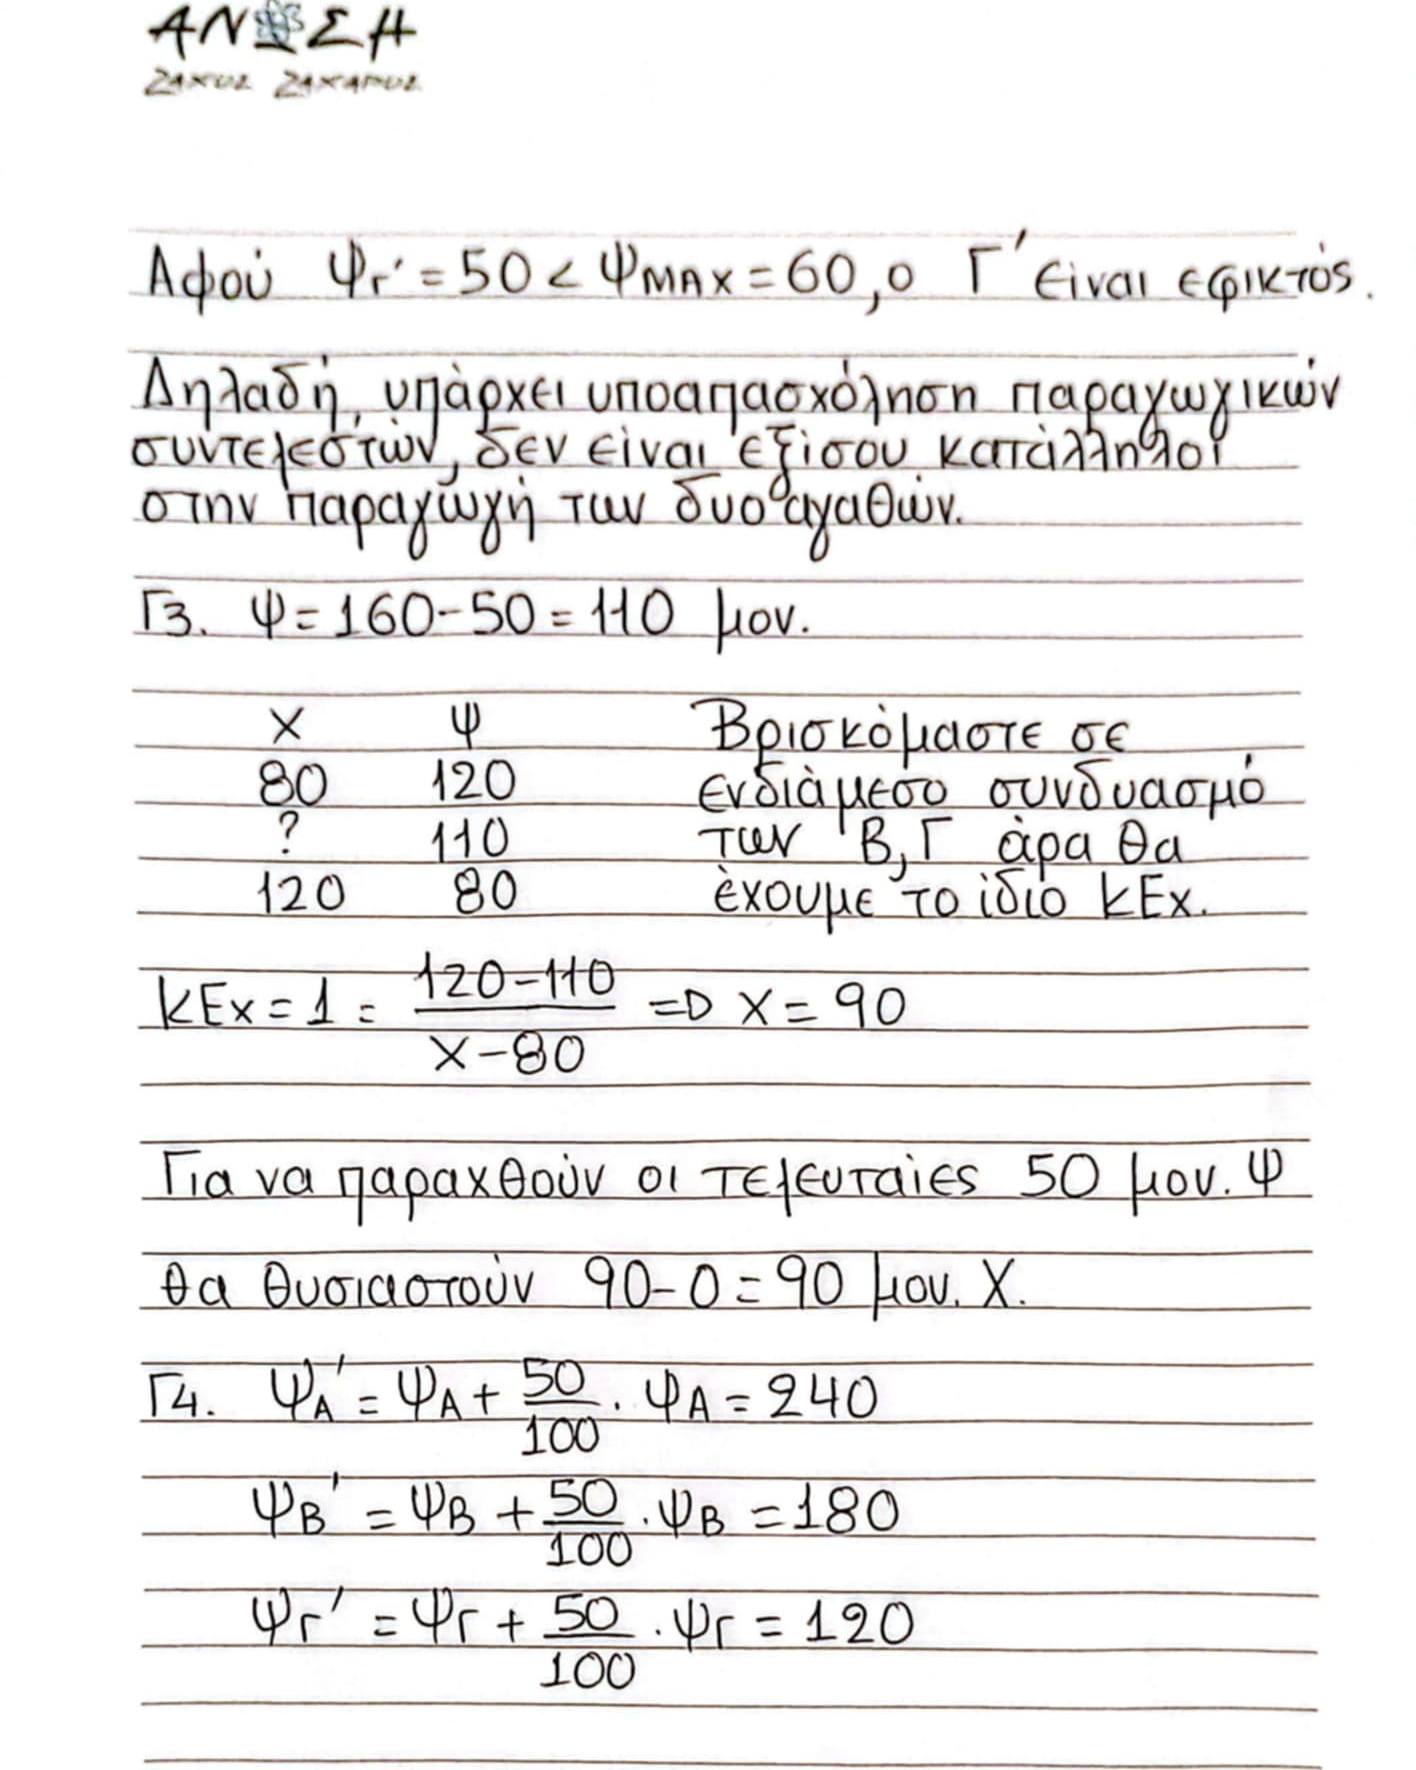 ΑΝΩΣΗ
ΖΑΧΟΣ ΖΑΧΑΡΟΣ
Αφού Ψг' = 50 < ΨMAX = 60, ο Γ' είναι εφικτός.
Δηλαδή, υπάρχει υποαπασχόληση παραγωγικών
συντελεστών, δεν είναι εξίσου κατάλληλοι
στην παραγωγή των δυο αγαθών.
Γ3. Ψ = 160 - 50 = 110 μον.
Χ Ψ Βρισκόμαστε σε
80 120 ενδιάμεσο συνδυασμό
? 110 των Β,Γ άρα θα
120 80 έχουμε το ίδιο ΚΕx.
ΚΕx = 1 = 120 - 110 / Χ - 80 => Χ = 90
Για να παραχθούν οι τελευταίες 50 μον. Ψ
θα θυσιαστούν 90 - 0 = 90 μον. Χ.
Γ4. ΨΑ' = ΨΑ + 50/100 · ΨΑ = 240
ΨΒ' = ΨΒ + 50/100 · ΨΒ = 180
ΨΓ' = ΨΓ + 50/100 · ΨΓ = 120